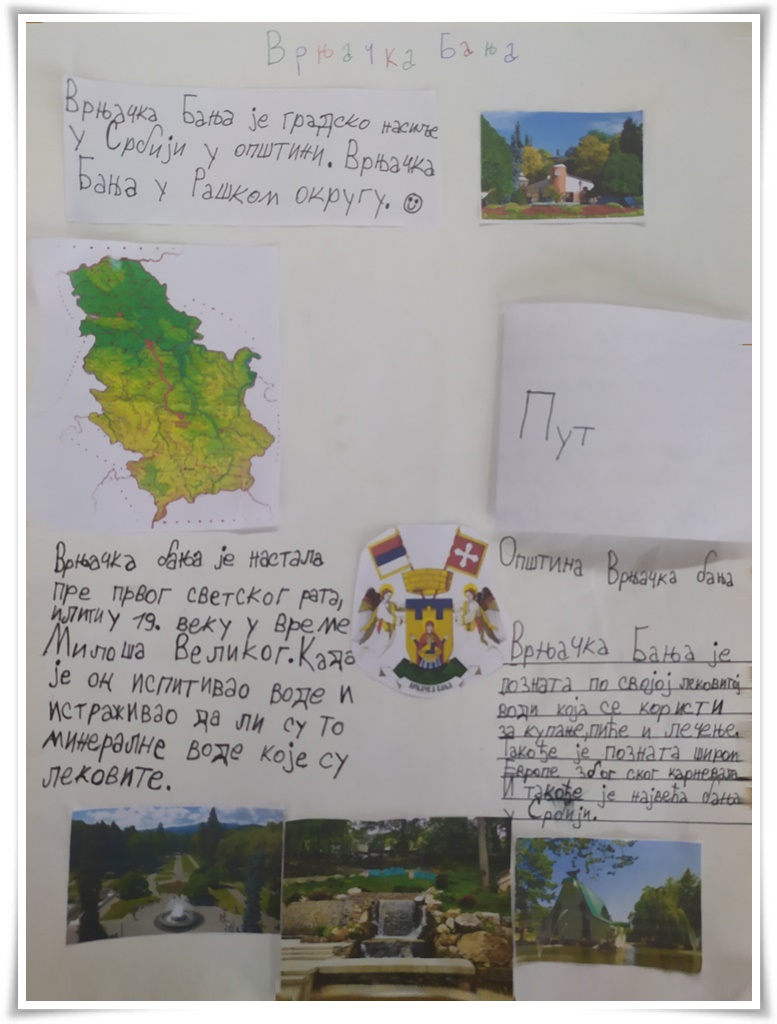 Врњачка Бања
Врњачка Бања је градско насиље
у Србији у општини. Врњачка
Бања у Рашком округу.
Пут
Врњачка бања је настала
пре првог светског рата,
илити у 19. веку у време
Милоша Великог. Када
је он испитивао воде и
истраживао да ли су то
минералне воде које су
лековите.
Општина Врњачка бања
Врњачка Бања је
позната по својој лековитој
води која се користи
за купање, пиће и лечење.
Такође је позната широм
Европе због ског карневала
И такође је највећа бања
у Србији.